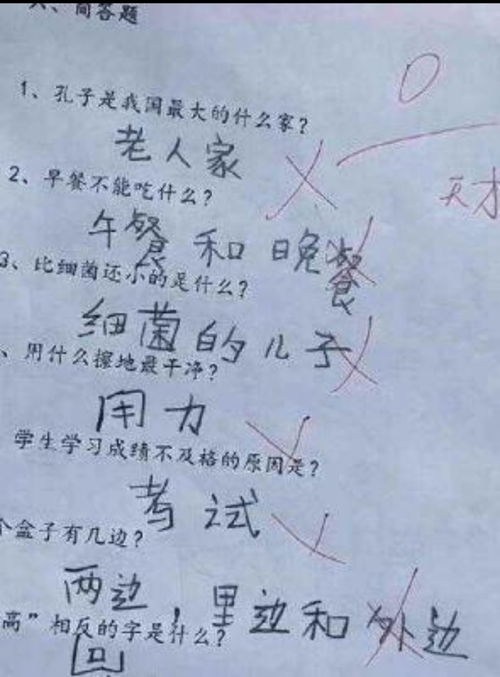 、简答题
0
1、孔子是我国最大的什么家?
老人家
天才
2、早餐不能吃什么?
午餐和晚餐
3、比细菌还小的是什么?
细菌的儿子
、用什么擦地最干净?
用力
学生学习成绩不及格的原因是?
考试
个盒子有几边?
两边,里边和外边
高”相反的字是什么?